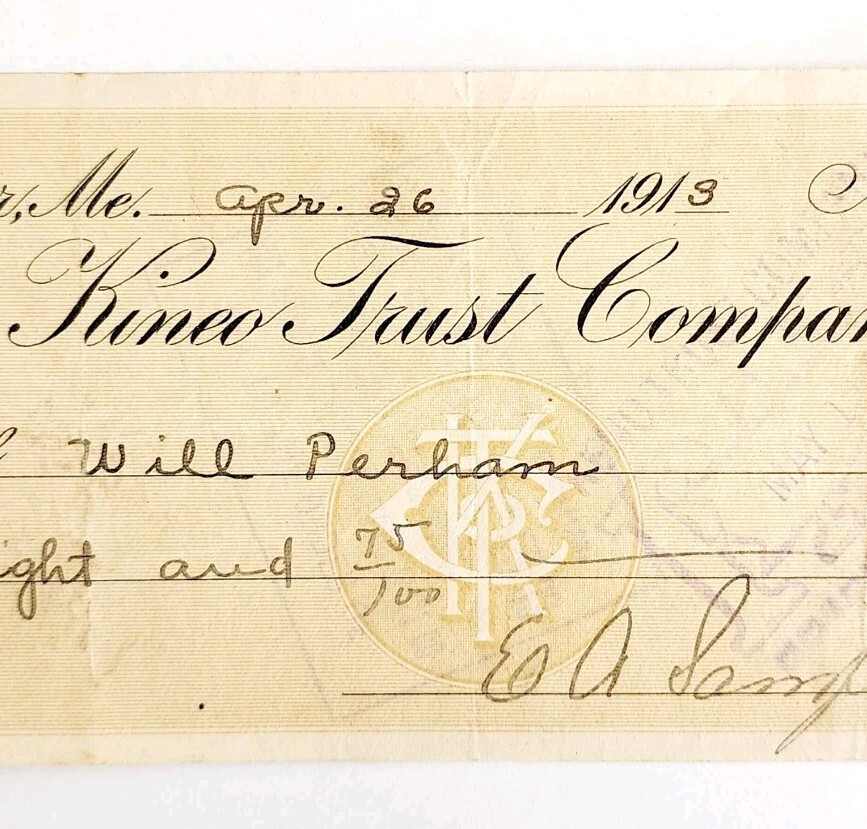 r, Me. Apr. 26 1913
Kineo Trust Compan
Will Perham
ight and 75/100
E A Samp
KTC
MAY 1